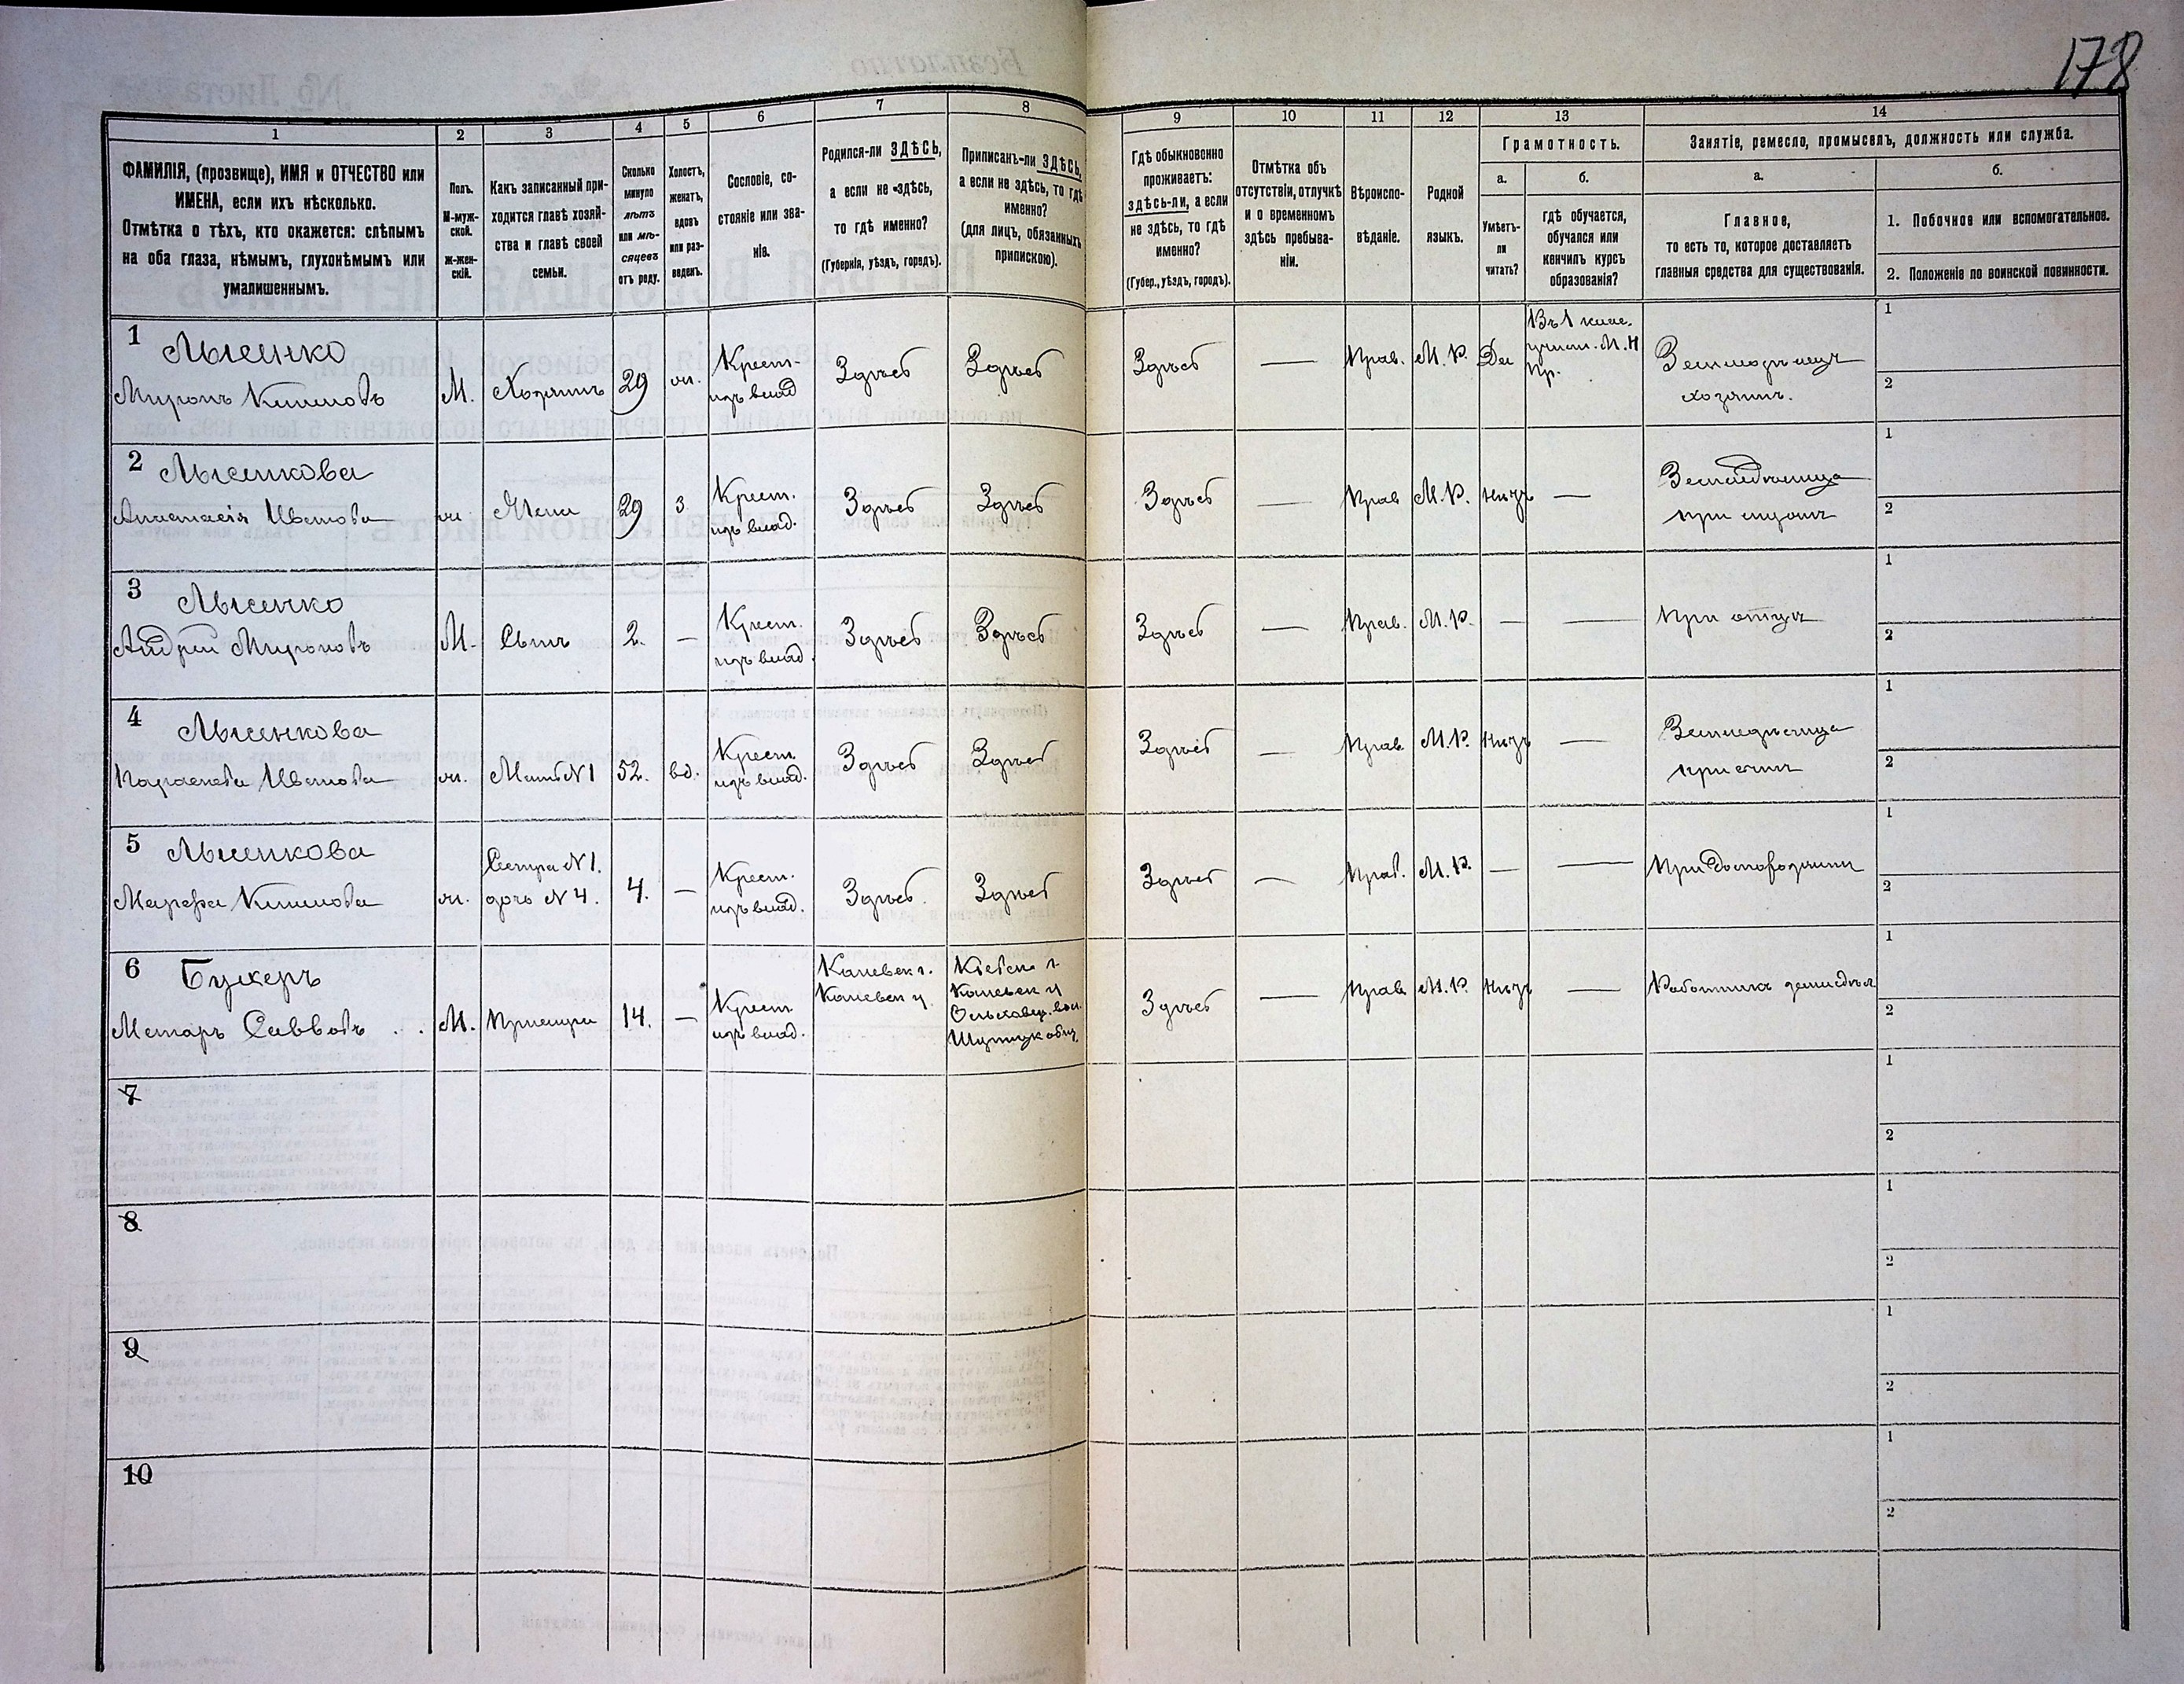 178
1
2
3
4
5
6
7
8
9
10
11
12
13
14
ФАМИЛІЯ, (прозвище), ИМЯ и ОТЧЕСТВО или
ИМЕНА, если ихъ нѣсколько.
Отмѣтка о тѣхъ, кто окажется: слѣпымъ
на оба глаза, нѣмымъ, глухонѣмымъ или
умалишеннымъ.
Полъ.
М-муж-
ской.
Ж-жен-
скій.
Какъ записанный при-
ходится главѣ хозяй-
ства и главѣ своей
семьи.
Сколько
минуло
лѣтъ
или мѣ-
сяцевъ
отъ роду.
Холостъ,
женатъ,
вдовъ
или раз-
веденъ.
Сословіе, со-
стояніе или зва-
ніе.
Родился-ли ЗДѢСЬ,
а если не здѣсь,
то гдѣ именно?
(Губернія, уѣздъ, городъ).
Приписанъ-ли ЗДѢСЬ,
а если не здѣсь, то гдѣ
именно?
(для лицъ, обязанныхъ
припискою).
Гдѣ обыкновенно
проживаетъ:
здѣсь-ли, а если
не здѣсь, то гдѣ
именно?
(Губер., уѣздъ, городъ).
Отмѣтка объ
отсутствіи, отлучкѣ
и о временномъ
здѣсь пребыва-
ніи.
Вѣроиспо-
вѣданіе.
Родной
языкъ.
Грамотность.
а.
Умѣетъ-
ли
читать?
б.
гдѣ обучается,
обучался или
кончилъ курсъ
образованія?
Занятіе, ремесло, промыселъ, должность или служба.
а.
Главное,
то есть то, которое доставляетъ
главныя средства для существованія.
б.
1. Побочное или вспомогательное.
2. Положеніе по воинской повинности.
1 Лысенко
Миронъ Климовъ
М. Хозяинъ 29 ж. Крест.
изъ влад. Здѣсь Здѣсь Здѣсь — Прав. М. Р. Да
Въ 1 клас.
училищ. М. Н.
Пр.
Земледѣлецъ
хозяинъ.
1
2
2 Лысенкова
Анастасія Иванова
ж. Жена 29 з. Крест.
изъ влад. Здѣсь Здѣсь Здѣсь — Прав. М. Р. —
при мужѣ
1
2
3 Лысенко
Андрей Мироновъ
М. Сынъ 2. — Крест.
изъ влад. Здѣсь Здѣсь Здѣсь — Прав. М. Р. — — При отцѣ
1
2
4 Лысенкова
Параскева Иванова
ж. Мать №1 52. вд. Крест.
изъ влад. Здѣсь Здѣсь Здѣсь — Прав. М. Р. —
Земледѣлица
при сынѣ
1
2
5 Лысенкова
Марфа Климова
ж. Сестра №1.
дочь №4. 4. — Крест.
изъ влад. Здѣсь Здѣсь Здѣсь — Прав. М. Р. — — При домохозяинѣ
1
2
6
Савковъ
М. 14. — Крест.
изъ влад.
Каневск у.
Кіевск. г.
Каневск у
Здѣсь — Прав. М. Р. — Работникъ
1
2
7
1
2
8
1
2
9
1
2
10
1
2